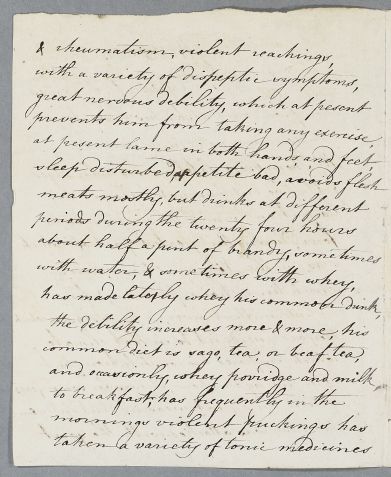 & rheumatism, violent reachings,
with a variety of dispeptic symptoms,
great nervous debility, which at pesent
prevents him from taking any exercise,
at present lame in both hands and feet
sleep disturbed appetite bad, avoids flesh
meats mostly, but drinks at different
periods during the twenty four hours
about half a pint of brandy, sometimes
with water, & sometimes with whey,
has made laterly whey his common drink,
the debility increases more & more, his
common diet is sago, tea, or beaf tea,
and, occasionly, whey porridge and milk
to breakfast, has frequently in the
mornings violent pukings has
taken a variety of tonic medicines